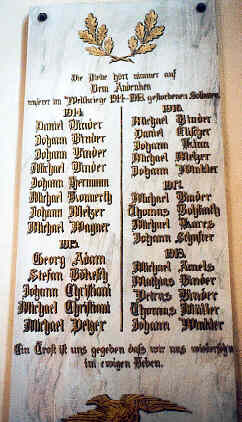 Die Liebe hört nimmer auf
Dem Andenken
unserer im Weltkriege 1914-1918 gestorbenen Soldaten.
1914.
Daniel Binder
Johann Binder
Johann Binder
Michael Binder
Johann Hermann
Michael Konnerth
Johann Metzer
Michael Wagner
1915.
Georg Adam
Stefan
Johann Christiani
Michael Christiani
Michael Melzer
1916.
Michael Binder
Daniel
Johann
Michael Metzer
Johann Winkler
1917.
Michael Binder
Thomas
Michael
Johann Schuster
1918.
Michael
Mathias Binder
Petrus Binder
Thomas Müller
Johann Winkler
Ein Trost ist uns gegeben daß wir uns wiedersehn
im ewigen Leben.